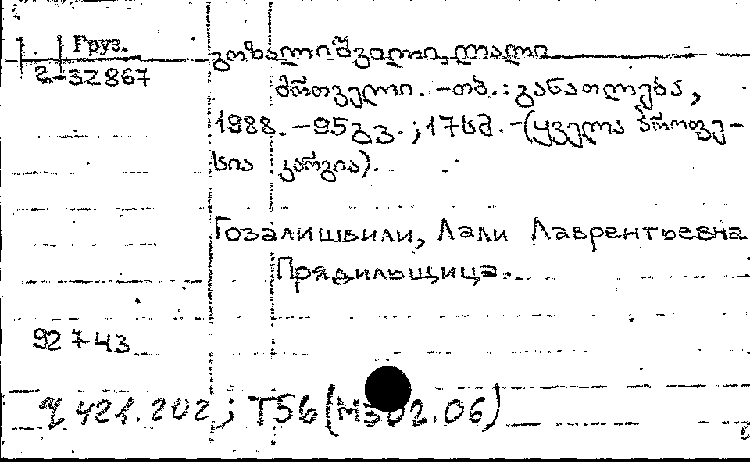 Груз.
გოზალიშვილი, ლალი
2-32867
მრთველი. -თბ.: განათლება,
1988. -95გვ.; 17სმ. -(ყველა პროფე-
სია კარგია).
Гозалишвили, Лали Лаврентьевна
Прядильщица.
92743
421.202; T56(M302.06)